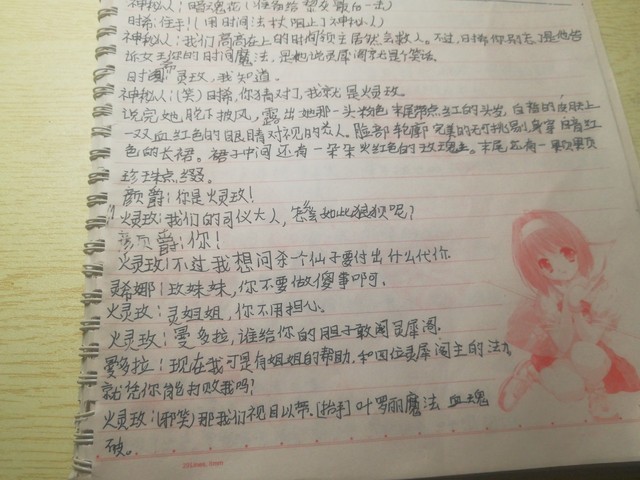 神秘人:暗魂花!(准备给黎灵最后一击)
时希:住手!(用时间法杖阻止了神秘人)
神秘人:我们高高在上的时间领主居然会救人。不过,时希你别忘了是他告
诉女王你的时间魔法,是他说灵犀阁就是个笑话。
时希:灵玫,我知道。
神秘人:(笑)时希,你猜对了,我就是火灵玫。
说完她,脱下披风,露出她那一头粉色末尾带点红的头发,白皙的皮肤上
一双血红色的眼睛对视的众人。脸部轮廓完美的无可挑剔,身穿暗红
色的长裙。裙子中间还有一朵朵火红色的玫瑰。末尾还有一颗颗
珍珠点缀。
颜爵:你是火灵玫!
火灵玫:我们的司仪大人,怎么如此狼狈呢?
颜爵:你!
火灵玫:不过我想问杀个仙子要付出什么代价
灵希娜:玫妹妹,你不要做傻事啊。
火灵玫:灵姐姐,你不用担心。
火灵玫:曼多拉,谁给你的胆子敢闯灵犀阁。
曼多拉:现在我可是有姐姐的帮助。和四位灵犀阁主的法力
就凭你能打败我吗?
火灵玫:(邪笑)那我们视目以带。[抬手]叶罗丽魔法 血魂
破。